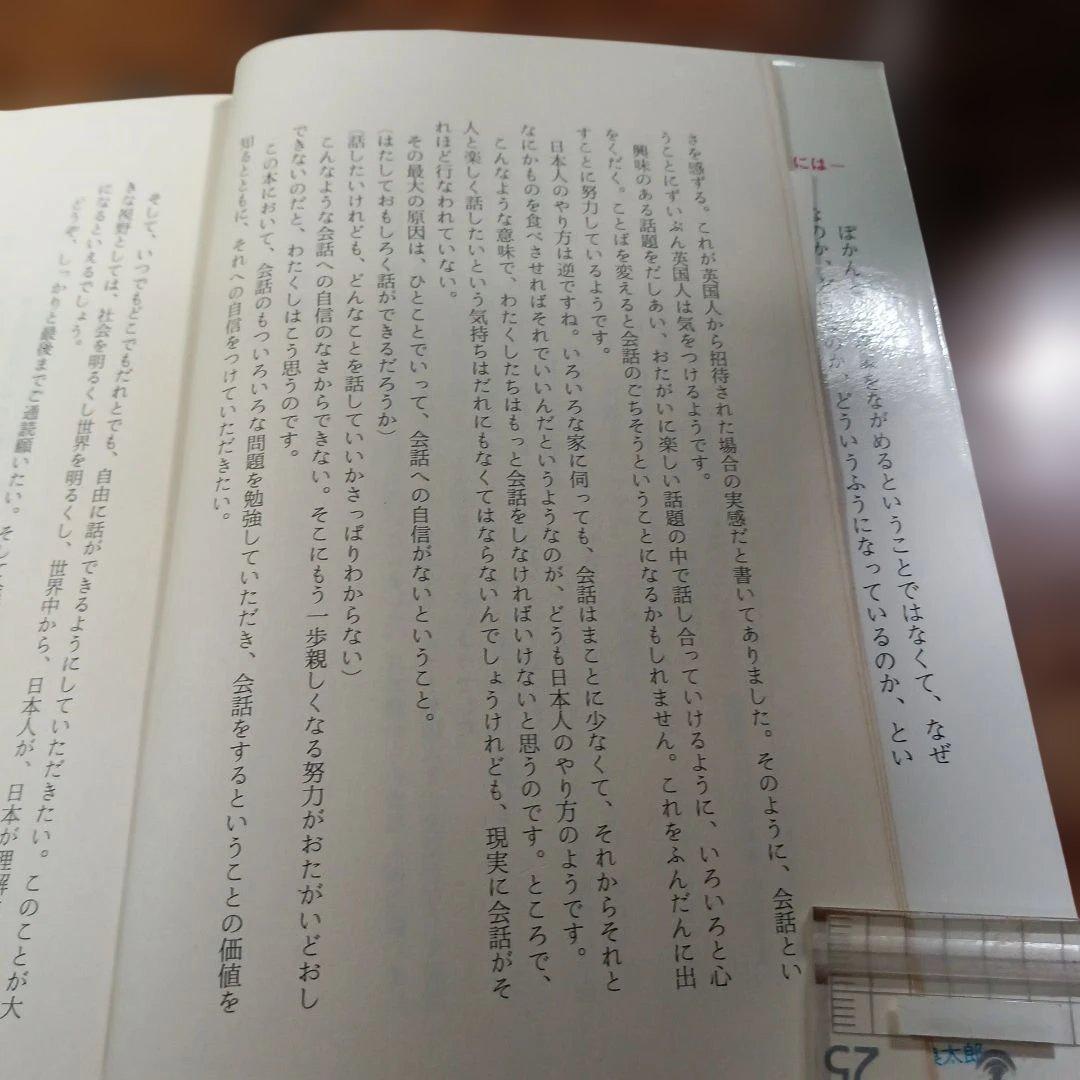 には―
ぽかんと
をながめるということではなくて、なぜ
なのか、
のか、どういうふうになっているのか、とい
さを感ずる。これが英国人から招待された場合の実感だと書いてありました。そのように、会話とい
うことにずいぶん英国人は気をつけるようです。
興味のある話題をだしあい、おたがいに楽しい話題の中で話し合っていけるように、いろいろと心
をくだく。ことばを変えると会話のごちそうということになるかもしれません。これをふんだんに出
すことに努力しているようです。
日本人のやり方は逆ですね。いろいろな家に伺っても、会話はまことに少なくて、それからそれと
なにかものを食べさせればそれでいいんだというようなのが、どうも日本人のやり方のようです。
こんなような意味で、わたくしたちはもっと会話をしなければいけないと思うのです。ところで、
人と楽しく話したいという気持ちはだれにもなくてはならないんでしょうけれども、現実に会話がそ
れほど行なわれていない。
その最大の原因は、ひとことでいって、会話への自信がないということ。
（はたしておもしろく話ができるだろうか）
（話したいけれども、どんなことを話していいかさっぱりわからない）
こんなような会話への自信のなさからできない。そこにもう一歩親しくなる努力がおたがいどおし
できないのだと、わたくしはこう思うのです。
この本において、会話のもついろいろな問題を勉強していただき、会話をするということの価値を
知るとともに、それへの自信をつけていただきたい。
そして、いつでもどこでもだれとでも、自由に話ができるようにしていただきたい。このことが大
きな視野としては、社会を明るくし世界を明るくし、世界中から、日本人が、日本が理解
になるといえるでしょう。
どうぞ、しっかりと最後までご通読願いたい。そして
太郎
25